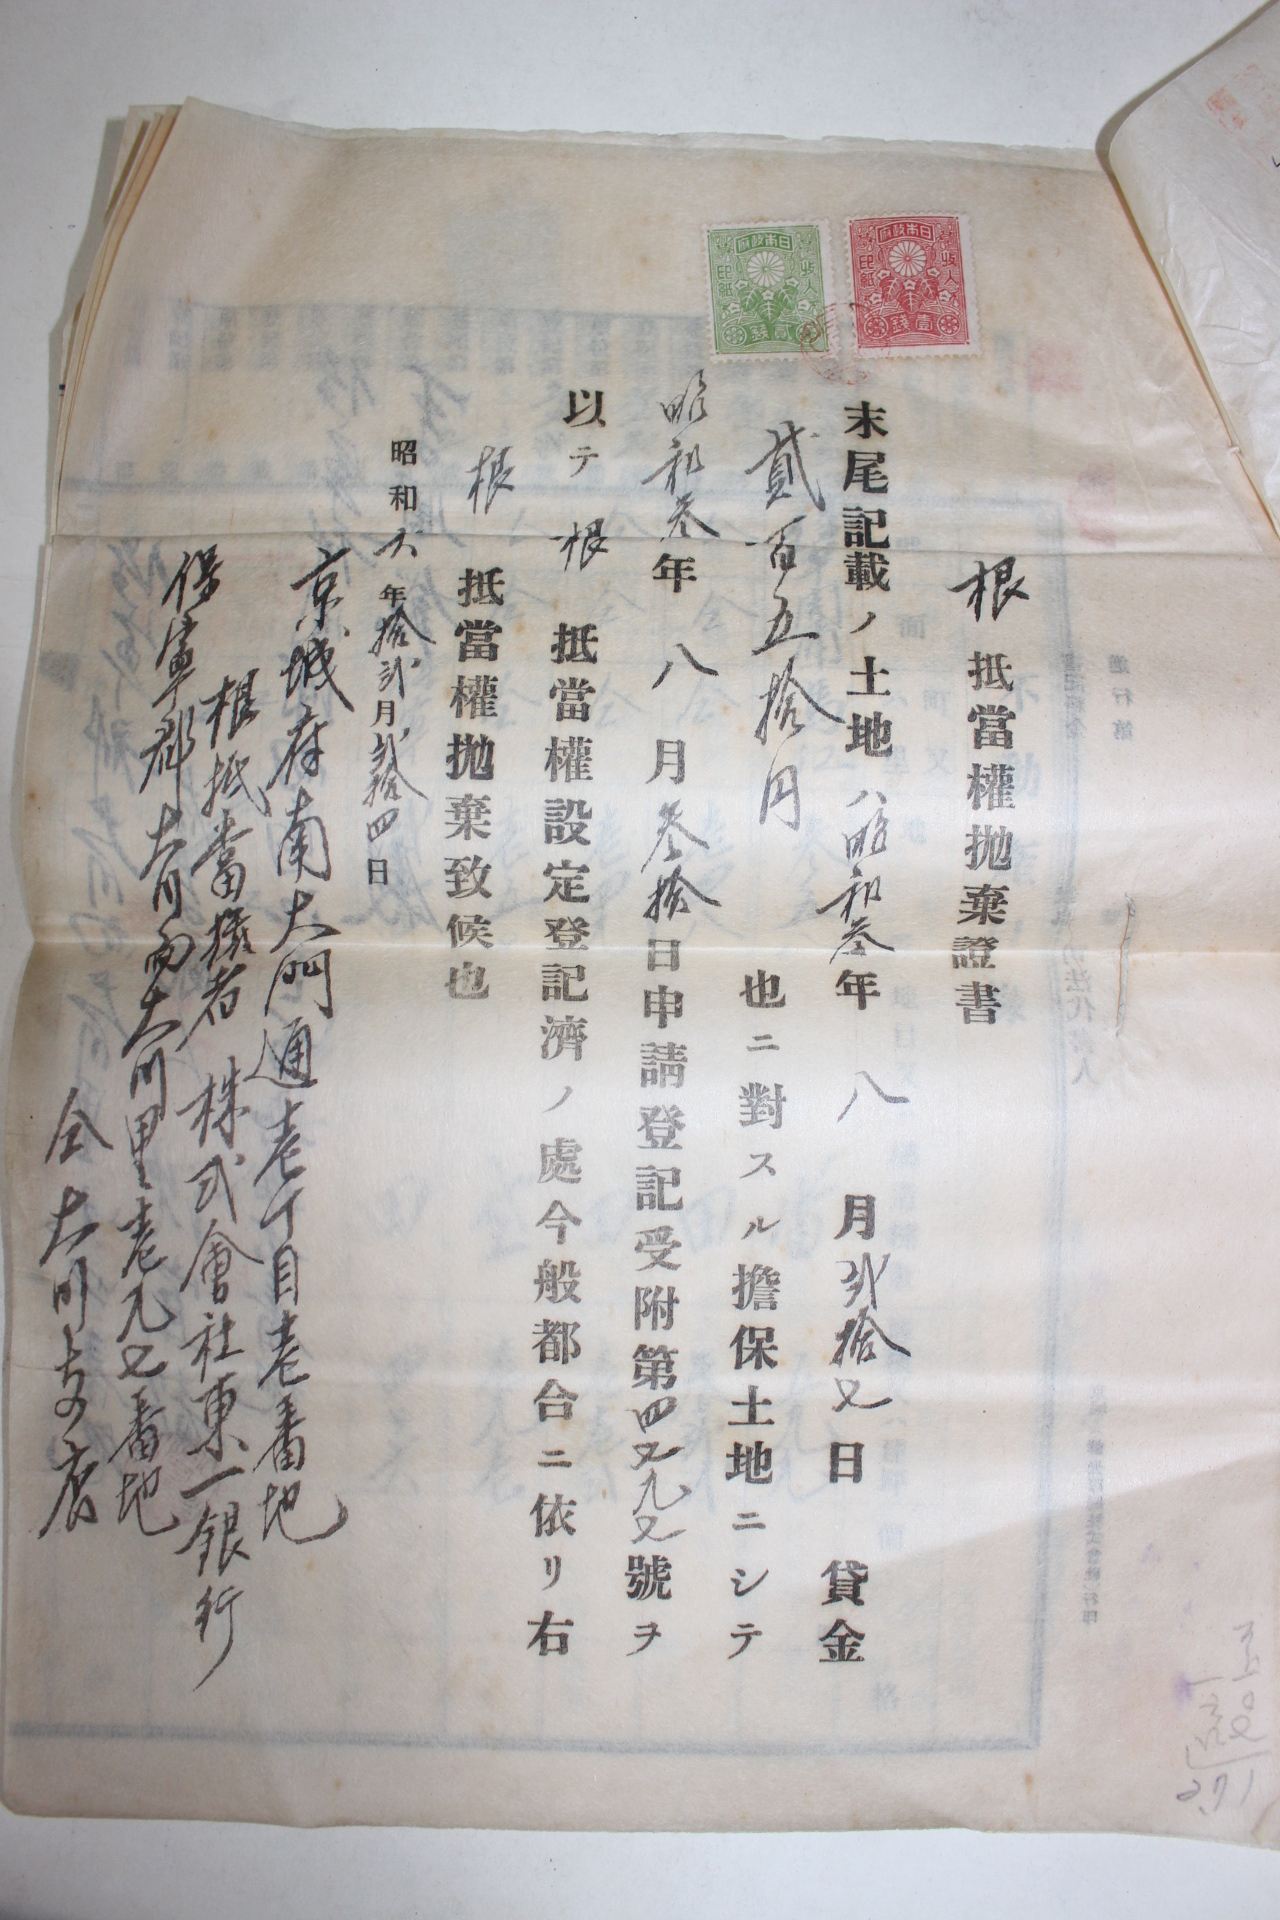 日本政府
收入
印紙
壹錢
日本政府
收入
印紙
貳錢
根抵當權抛棄證書
末尾記載ノ土地ハ昭和參年八月貳拾又日貸金
貳百五拾円也ニ對スル擔保土地ニシテ
昭和參年八月參拾日申請登記受附第四又九又號ヲ
以テ根抵當權設定登記濟ノ處今般都合ニ依リ右
根抵當權抛棄致候也
昭和六年拾貳月貳拾四日
京城府南大門通壱丁目壱番地
根抵當權者 株式會社東一銀行
保寧郡大川面大川里壱九七番地
仝大川支店